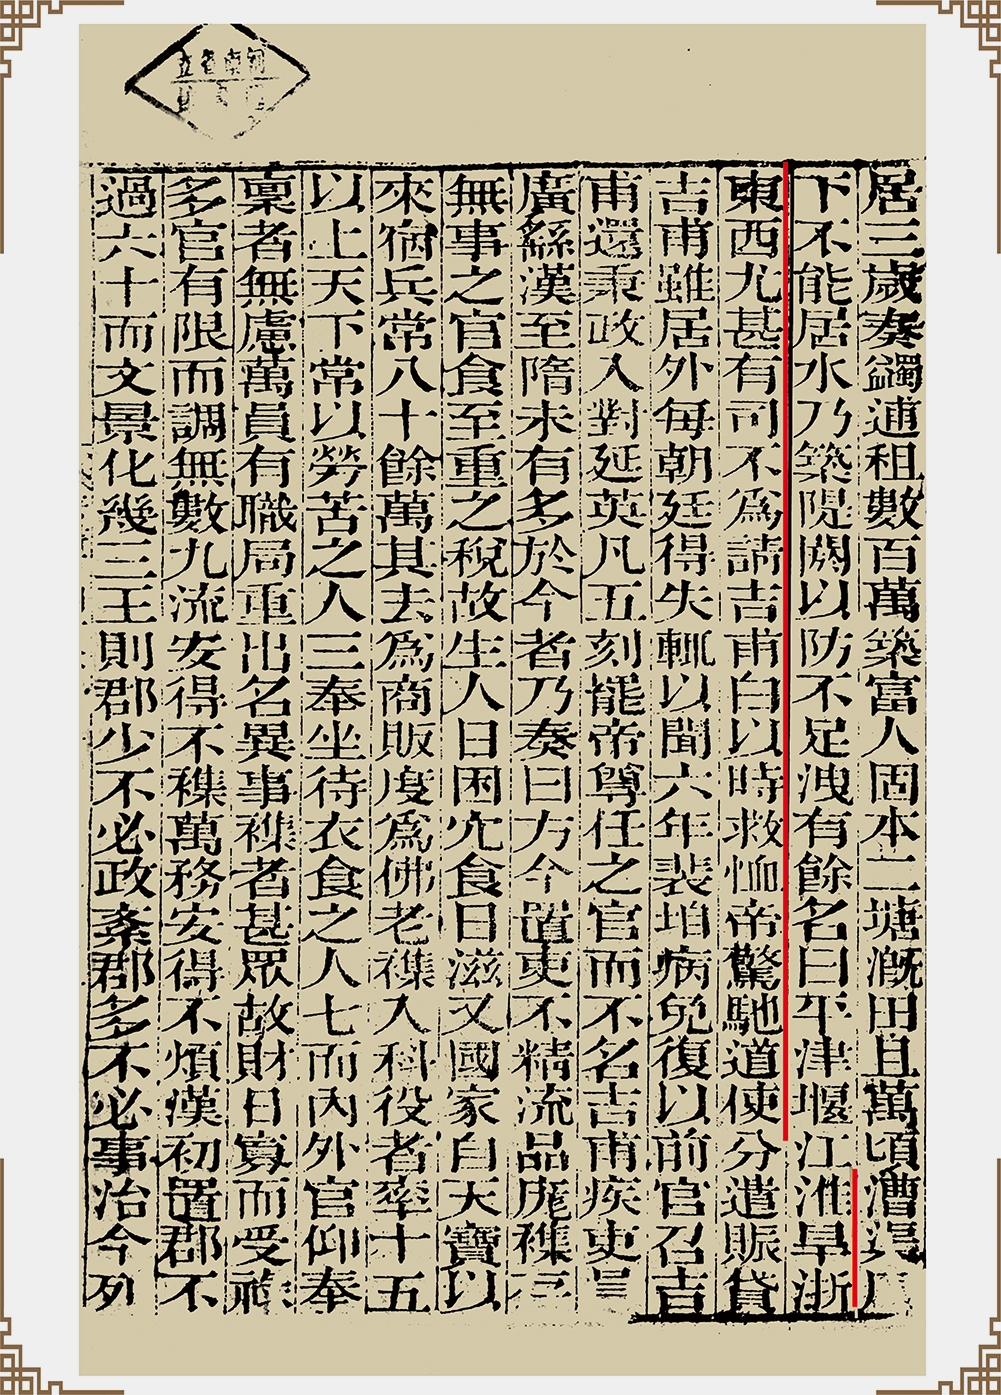 居三歲奏蠲逋租數百萬築富人固本二塘漑田且萬頃漕渠庳
下不能居水乃築隄閼以防不足洩有餘名曰平津堰江淮旱浙
東西尤甚有司不爲請吉甫白以時救恤帝驚馳道使分遣賑貸
吉甫雖居外每朝廷得失輒以聞六年裴垍病免復以前官召吉
甫還秉政入對延英凡五刻罷帝尊任之官而不名吉甫疾吏員
廣繇漢至隋未有多於今者乃奏曰方今置吏不精流品庬襍存
無事之官食至重之稅故生人日困冗食日滋又國家自天寶以
來宿兵常八十餘萬其去爲商販度爲佛老襍入科役者率十五
以上天下常以勞苦之人三奉坐待衣食之人七而內外官仰奉
稟者無慮萬員有職局重出名異事襍者甚眾故財日寡而受祿
多官有限而調無數九流安得不襍萬務安得不煩漢初置郡不
過六十而文景化幾三王則郡少不必政紊郡多不必事治今列